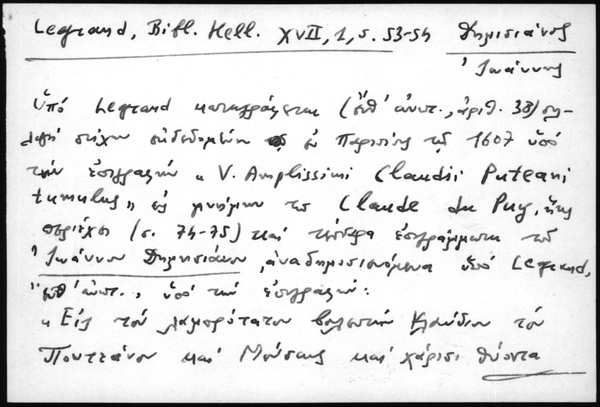 Legrand, Bibl. Hell. XVII, 1, s. 53-54 Δημισιάνος
Ἰωάννης
Ὑπό Legrand καταγράφεται (ἔνθ' ἀνωτ., ἀριθ. 38) συλ-
λογή στίχων ἐκδεδομένη ἐν Παρισίοις τῷ 1607 ὑπό
τήν ἐπιγραφήν « V. Amplissimi Claudii Puteani
tumulus» εἰς μνήμην τοῦ Claude du Puy, ἥτις
περιέχει (σ. 74-75) καί τέσσερα ἐπιγράμματα τοῦ
Ἰωάννου Δημισιάνου, ἀναδημοσιευόμενα ὑπό Legrand,
ἔνθ' ἀνωτ., ὑπό τήν ἐπιγραφήν:
« Εἰς τόν λαμπρότατον βουλευτήν Κλαύδιον τόν
Πουτεάνον καί Μούσαις καί χάρισι θύοντα